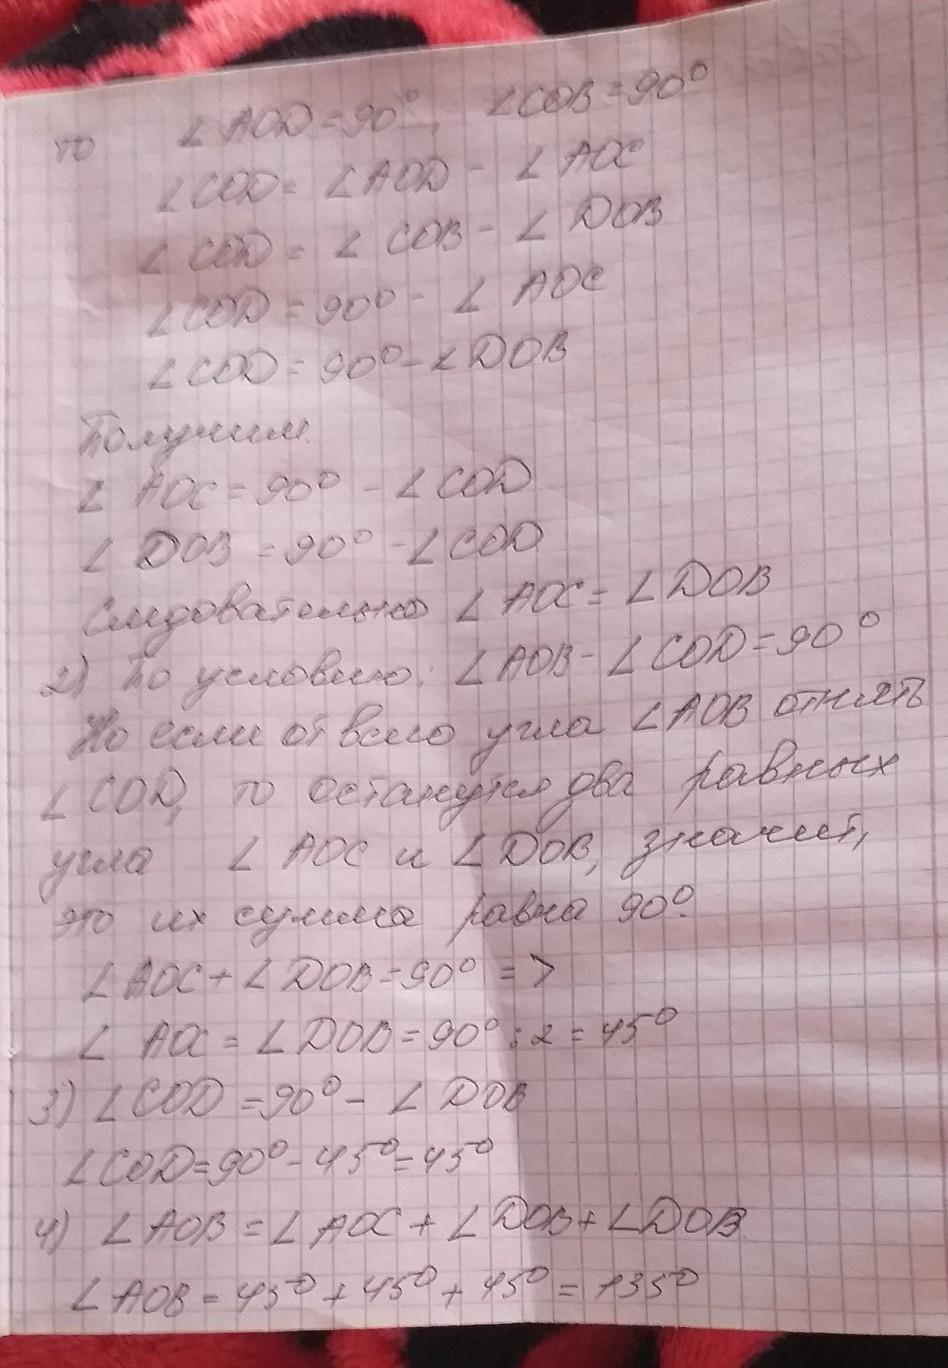 то ∠AOD=90°, ∠COB=90°
∠COD= ∠AOD - ∠AOC
∠COD = ∠COB- ∠DOB
∠COD=90° - ∠AOC
∠COD= 90°-∠DOB
Получим
∠AOC=90° -∠COD
∠DOB =90° -∠COD
Следовательно ∠AOC= ∠DOB
2) По условию: ∠AOB- ∠COD=90°
Но если от всего угла ∠AOB отнять
∠COD, то останутся два равных
угла ∠AOC и ∠DOB, значит,
это их сумма равна 90°.
∠AOC+∠DOB=90° =>
∠AOC = ∠DOB=90°:2=45°
3) ∠COD =90°- ∠DOB
∠COD=90°-45°=45°
4) ∠AOB=∠AOC+∠DOB+∠DOB
∠AOB=45°+45°+45°=135°